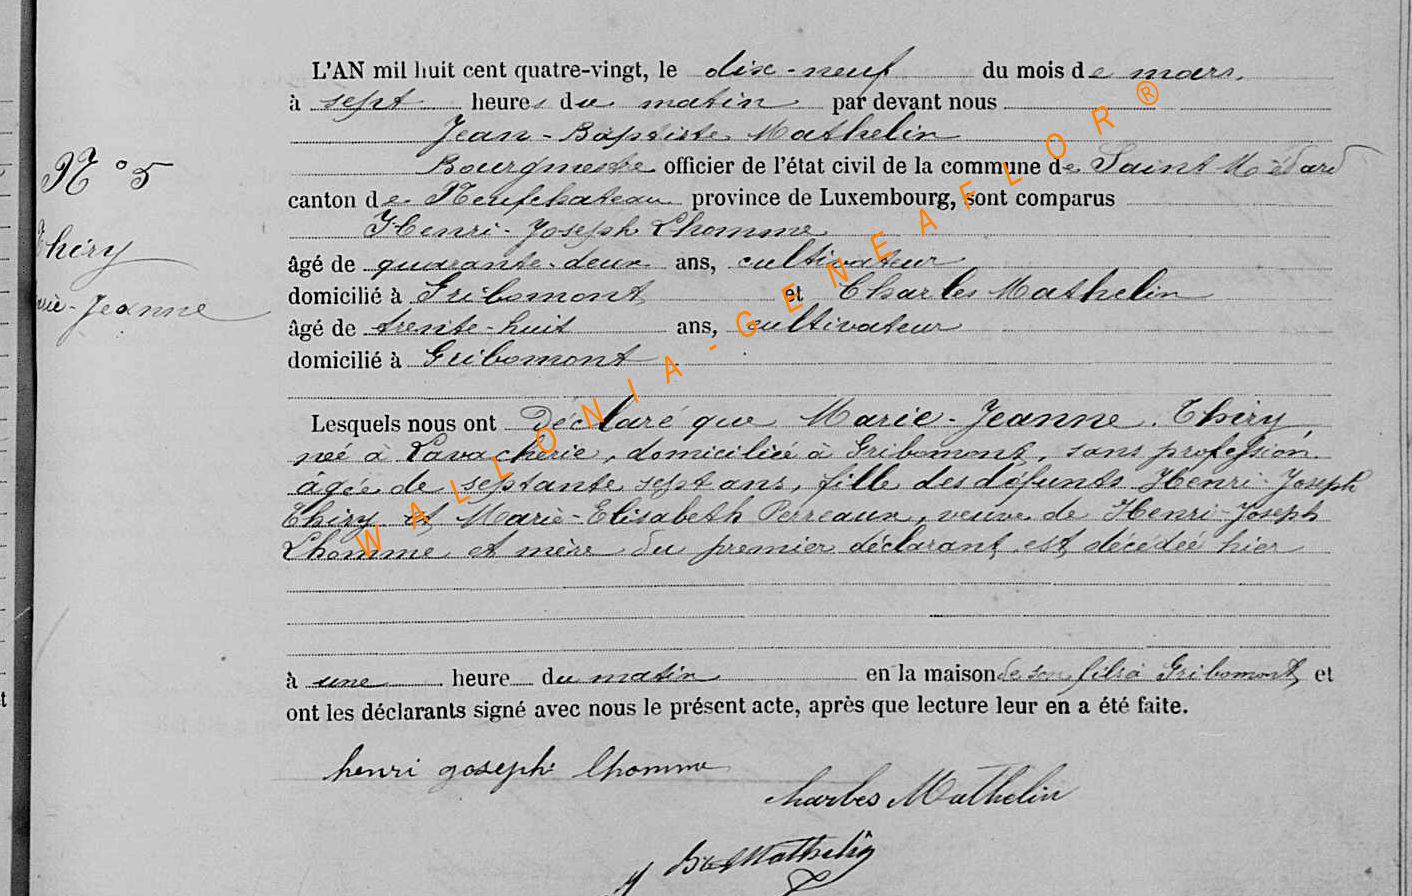 L'AN mil huit cent quatre-vingt, le dix-neuf du mois de mars.
à sept heures du matin par devant nous
Jean-Baptiste Mathelin
Bourgmestre officier de l'état civil de la commune de Saint-Médard
canton de Neufchateau province de Luxembourg, sont comparus
Henri-Joseph Lhomme
âgé de quarante-deux ans, cultivateur
domicilié à Gribomont et Charles Mathelin
âgé de trente-huit ans, cultivateur
domicilié à Gribomont
Lesquels nous ont Déclaré que Marie-Jeanne Thiry,
née à Lavacherie, domiciliée à Gribomont, sans profession.
âgée de septante sept ans, fille des défunts Henri-Joseph
Thiry et Marie-Elisabeth Perreaux, veuve de Henri-Joseph
Lhomme, et mère du premier déclarant, est décédée hier
à une heure du matin en la maison de son fils à Gribomont, et
ont les déclarants signé avec nous le présent acte, après que lecture leur en a été faite.
henri joseph lhomme
charles Mathelin
Mathelin
N° 5
Thiry
Jeanne
WALLONIA-GENEAFLOR®